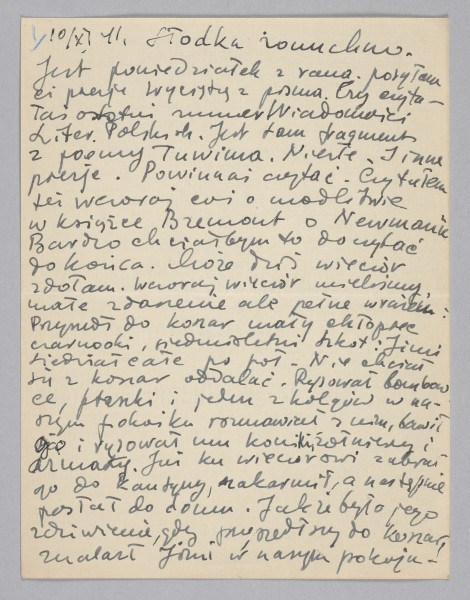 10/XI 41. Słodka romuchno.
Jest poniedziałek z rana. posyłam
ci poezje wycięte z pisma. Czy czyta-
łaś ostatni numer Wiadomości
Liter. Polskich. Jest tam fragment
z poemy Tuwima. Niezłe. I inne
poezje. Powinnaś czytać. Czytałem
też wczoraj coś o modlitwie
w książce Bremont o Newmanie
Bardzo chciałbym to doczytać
do końca. Może dziś wieczór
zdołam. Wczoraj wieczór mieliśmy
małe zdarzenie ale pełne wrażeń.
Przyszedł do koszar mały chłopiec
czarnooki, siedmioletni szkot: Jimi
siedział całe po poł. Nie chciał
się z koszar oddalać. Rysował bombow
ce, ptaszki i jeden z kolegów w na-
szym pokoiku rozmawiał z nim, bawił
go i rysował mu koniki, żołnierzy i
armaty. Już ku wieczorowi zabrał
go do kantyny, nakarmił, a następnie
posłał do domu. Jakże było jego
zdziwienie, gdy przyszedłszy do koszar,
znalazł Jimi w naszym pokoju-!